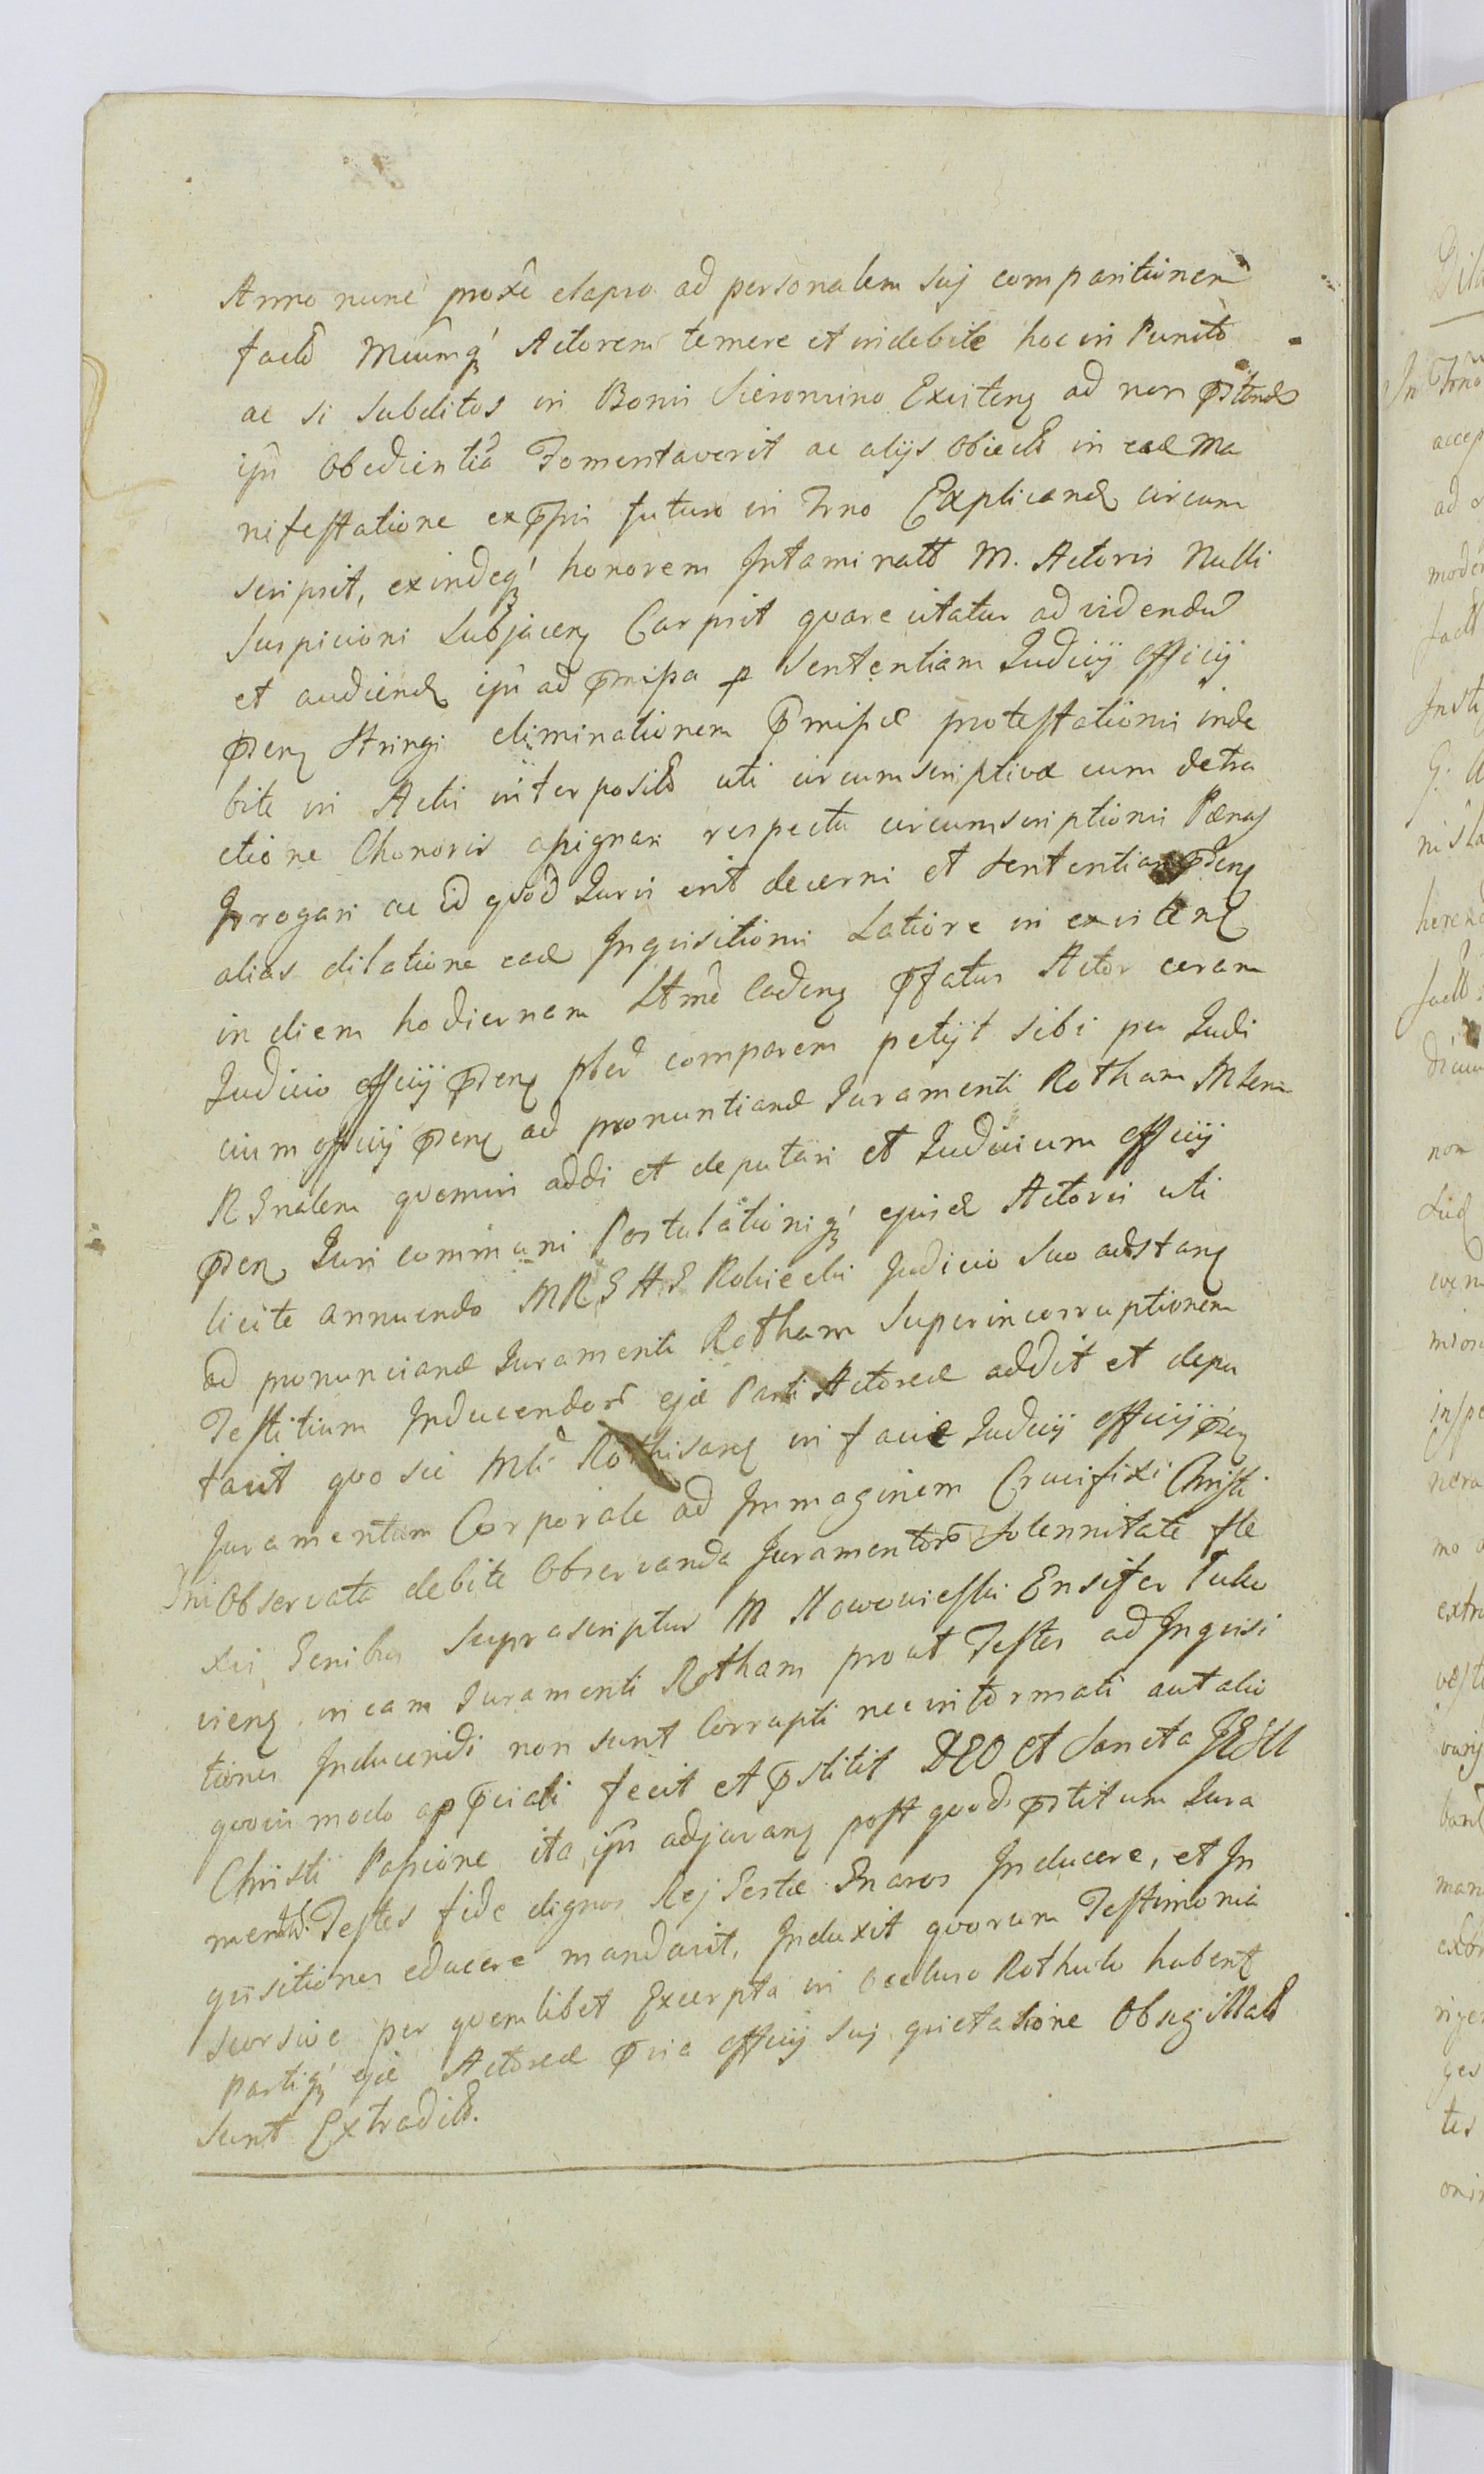 Anno nunc proxe elapso ad personalem suj comparitionem
facto Mcumq Actorem temere et indebite hoc in Puncto
ac si subditos in Bonis Sieromino Existenq ad non
ipi obedientia Fomentaverit ac alijs obiectis in ead Ma
nifestatione futuro in Trno Explicand circum
scripsit, exindeq honorem Intaminatt M. Actoris Nulli
suspicioni Subjacenq Carpsit qvare citatur ad videndu
et audiend ipi ad pmissa p Sententiam Judicij officij
pnq Stringi eliminationem pmissæ protestationis inde
bite in Actis interposita uti circumscriptivæ cum detra
ctione honoris assignari respectu circumscriptionis Pænas
Irrogari ac id qvod Juris erit decerni et sententiari
alias dilatione ead Inqvisitionis Latiore in
in diem hodiernam Ltme Cadenq pfatus Actor coram
Judicio officij pnq comparens petijt sibi per Judi
cium officij pnq ad pronuntiand Juramenti Rotham Mlem
RGnalem qvempiam addi et deputari et Judicium officij
pnq Juri communi Postulationiq ejusd Actoris uti
licite annuendo MRGHS Robiecki Judicio Suo adstanq
ad pronunciand Juramenti Rotham Super incorruptionem
Testitium Inducendor ejæ Parti Actoreæ addit et depu
tavit qvo sic Rothisanq in facie Judicij officij pnq
Juramentum Corporale ad Immaginem Crucifixi Christi
Dni Observata debite Observanda Juramentor Solennitate fle
xis Genibus Suprascriptus M Nowowieski Ensifer
vienq in eam Juramenti Rotham prout Testes ad Inqvisi
tiones Inducendi non sunt Corrupti nec informati aut alio
qvovis modo appciati fecit et pstitit DEO et Sancta JESU
Christi Passione ita ipi adjuvanq post qvod pstitum Jura
mentu Testes fide dignos Rej Gestæ Gnaros Inducere, et In
qvisitiones educere mandavit, Induxit qvorum Testimonia
seorsive per qvemlibet Excerpta in occluso Rothulo habent
Partiq ejæ Actoreæ pvia officij suj qvietatione Obsigillat
sunt Extradita.